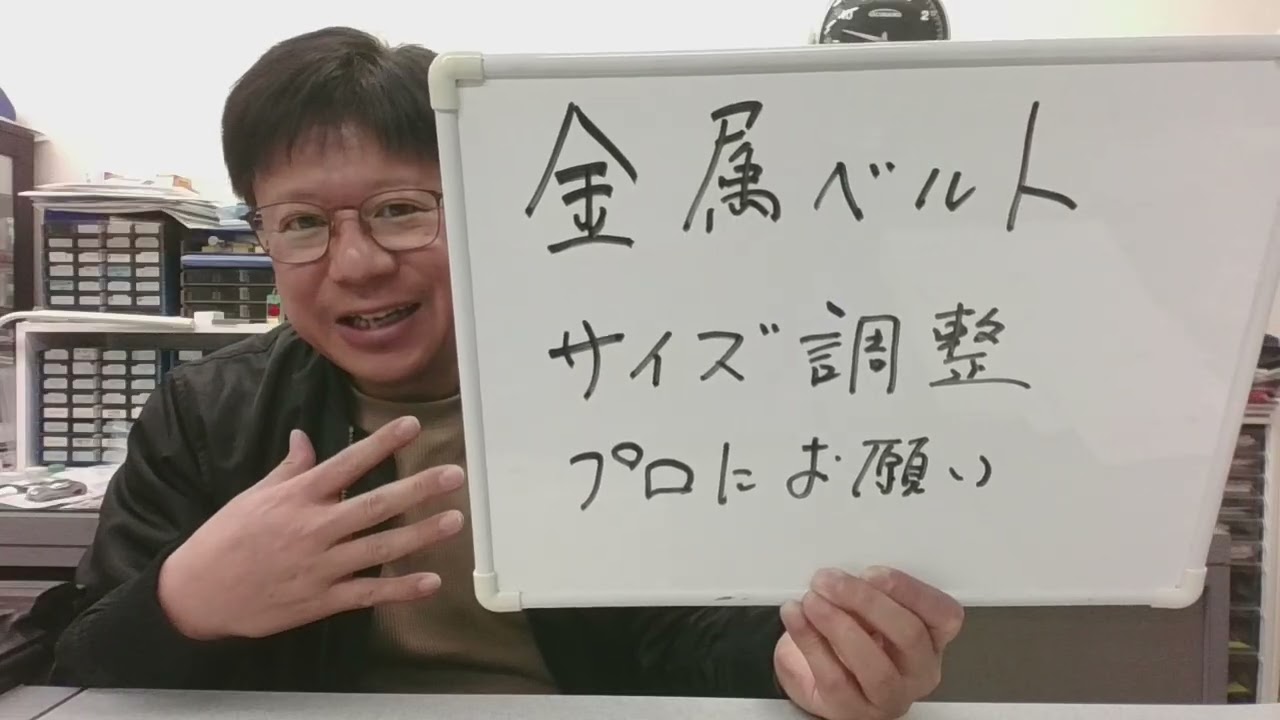 金属ベルト
サイズ調整
プロにお願い